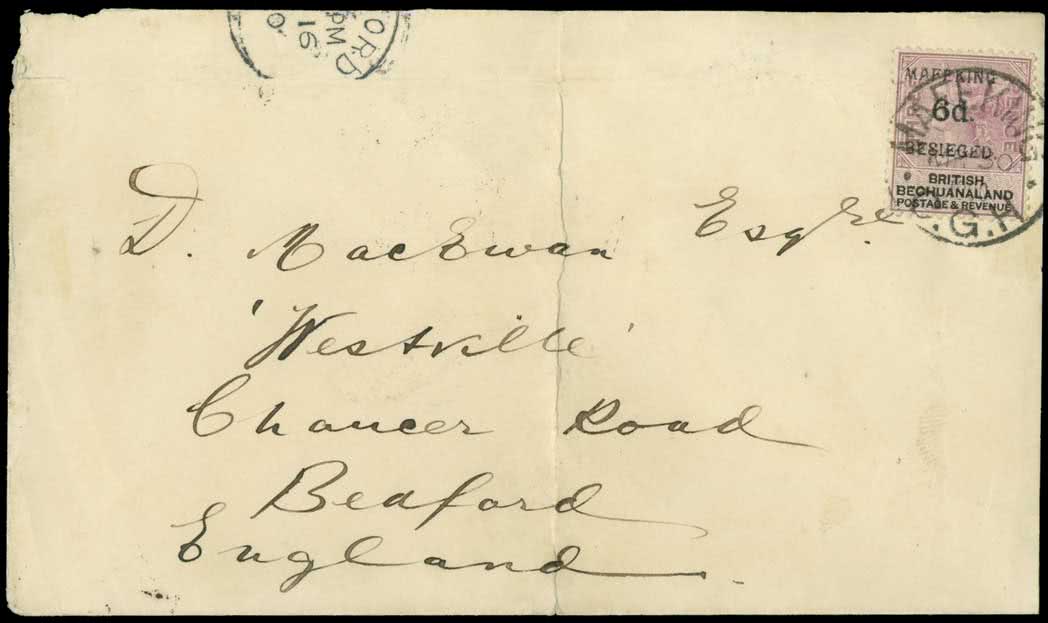 ORD
PM
16
0
MAFEKING
6d.
BESIEGED
BRITISH
BECHUANALAND
POSTAGE & REVENUE
MAFEKING
30
.G.H
D. MacEwan Esqre
'Westville'
Chaucer Road
Bedford
England